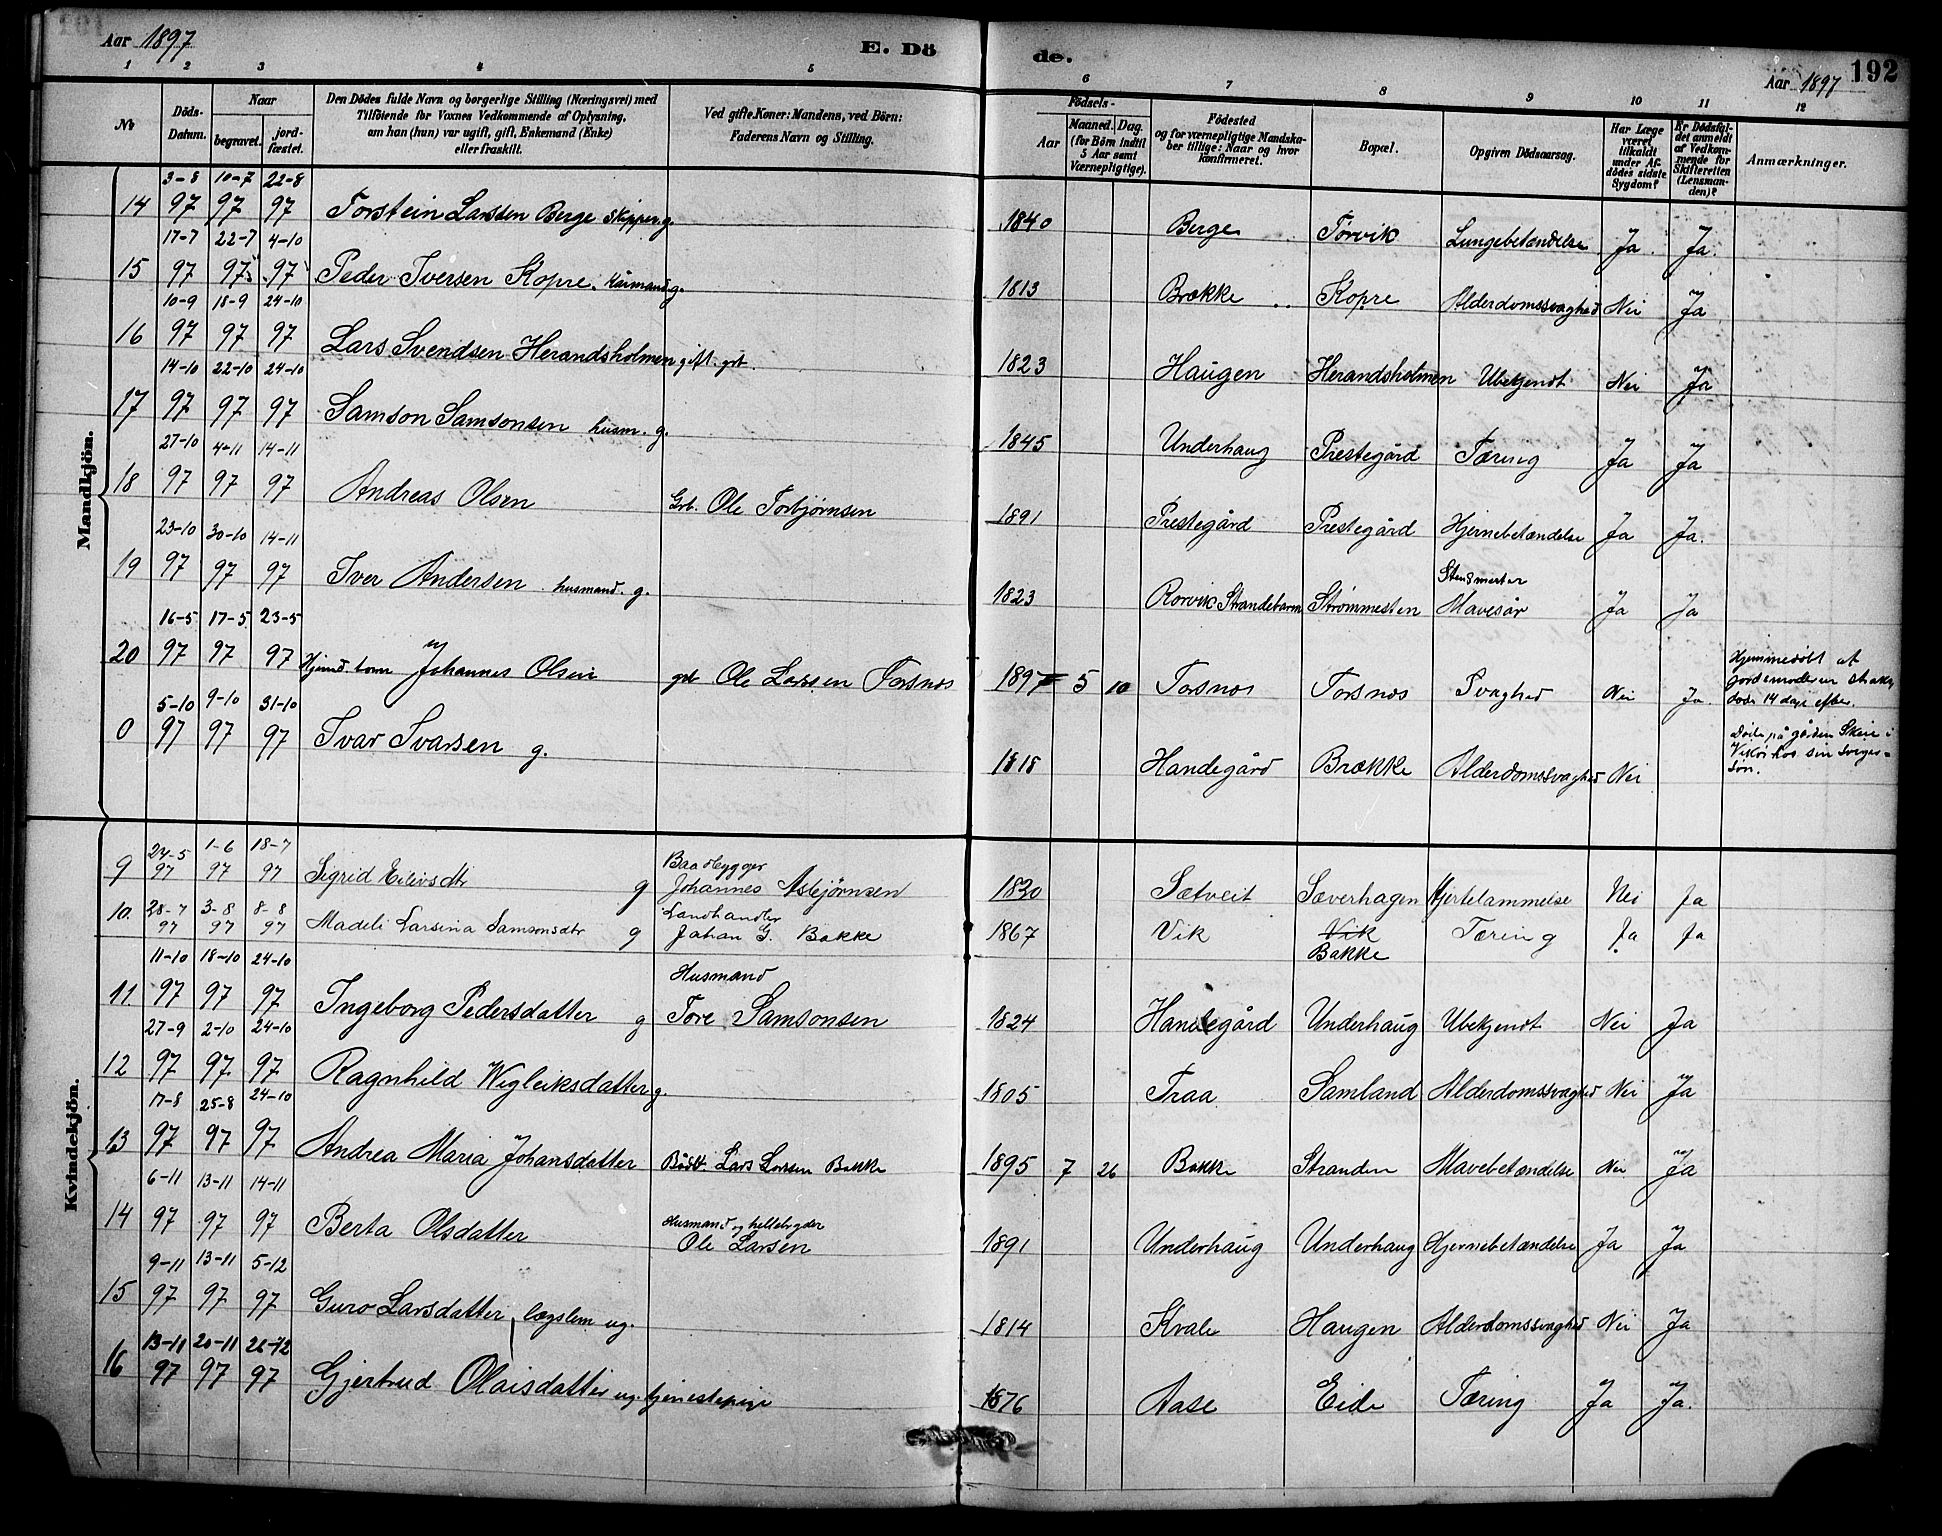 Aar 1897
E. Dö
de.
Aar 1897
192
1 2 3 4 5 6 7 8 9 10 11 12
Nr
Döds-Datum.
Naar
begravet.
jord-fæstet.
Den Dödes fulde Navn og borgerlige Stilling (Næringsvei) med
Tilföiende for Voxnes Vedkommende af Oplysning,
om han (hun) var ugift, gift, Enkemand (Enke)
eller fraskilt.
Ved gifte Koner: Mandens, ved Börn:
Faderens Navn og Stilling.
Födsels-
Aar
Maaned. Dag.
(for Börn indtil
5 Aar samt
Værnepligtige).
Födested
og for værnepligtige Mandska-
ber tillige: Naar og hvor
konfirmeret.
Bopæl.
Opgiven Dödsaarsag.
Har Læge
været
tilkaldt
under Af-
dödes sidste
Sygdom?
Er Dödsfal-
det anmeldt
af Vedkom-
mende for
Skifteretten
(Lensman-
den)?
Anmærkninger.
Mandkjön.
3-8 10-7 22-8
14 97 97 97 Torstein Larssen Berge Skipper g. 1840 Berge Torvik Lungebetændelse Ja. Ja.
17-7 22-7 4-10
15 97 97 97 Peder Iversen Kopre. g. 1813 Brække Kopre Alderdomssvaghed Nei Ja
10-9 18-9 24-10
16 97 97 97 Lars Svendsen Herandsholmen gift. 1823 Haugen Herandsholmen Ubekjendt Nei Ja
14-10 22-10 24-10
17 97 97 97 Samson Samsonsen husm. g. 1845 Underhaug Prestegård Tæring Ja Ja
27-10 4-11 14-11
18 97 97 97 Andreas Olsen Grb. Ole Torbjørnsen 1891 Prestegård Prestegård Hjernebetændelse Ja Ja.
23-10 30-10 14-11
19 97 97 97 Iver Andersen. husmand. g. 1823 Rørvik Strandebarm Strømmesten Mavesår Ja Ja
16-5 17-5 23-5
20 97 97 97 Johannes Olsen Ole Larsen Torsnes 1897 5 10 Torsnes Torsnes Svaghed Nei Ja. Hjemmedøbt af
gordemoderen straks,
døde 14 dage efter.
5-10 9-10 31-10
0 97 97 97 Ivar Ivarsen g. 1818 Handegård Brække Alderdomssvaghed Nei Døde på gården Skeie i
Vikør hos sin sviger-
søn.
Kvindekjön.
24-5 1-6 18-7
9 97 97 97 Sigrid Eilevsdtr g Baadbygger
Johannes Asbjørnsen 1830 Sætveit Sæverhagen Hjertelammelse Nei Ja
28-7 3-8 8-8
10. 97 97 97 Madeli Larsina Samsonsdtr g Landhandler
Johan G. Bakke 1867 Vik Vik
Bakke Tæring Ja Ja
11-10 18-10 24-10
11. 97 97 97 Ingeborg Pedersdatter g Husmand
Tore Samsonsen 1824 Handegård Underhaug Ubekjendt Nei Ja
27-9 2-10 24-10
12 97 97 97 Ragnhild Wigleiksdatter g. 1805 Traa Samland Alderdomssvaghed Nei Ja
17-8 25-8 24-10
13 97 97 97 Andrea Maria Johansdatter Lars Larsen Bakke 1895 7 26 Bakke Stranden Mavebetændelse Nei Ja
6-11 13-11 14-11
14 97 97 97 Berta Olsdatter Husmand og hellebryder
Ole Larsen 1891 Underhaug Underhaug Hjernebetændelse Ja Ja
9-11 13-11 5-12
15 97 97 97 Guro Larsdatter, lægslem ug. 1814 Kvale Haugen Alderdomssvaghed Nei Ja
13-11 20-11 26-12
16 97 97 97 Gjertrud Olaisdatter ug. tjenestepige 1876 Aase Eide Tæring Ja Ja.